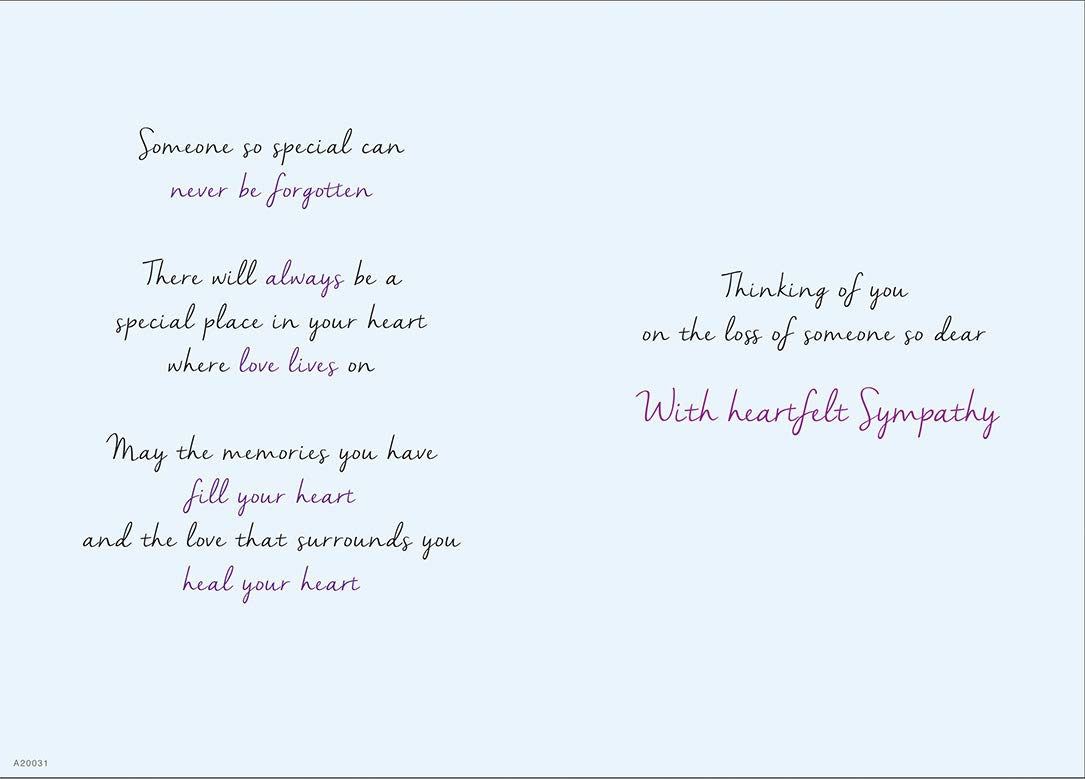 Someone so special can
never be forgotten
There will always be a
special place in your heart
where love lives on
May the memories you have
fill your heart
and the love that surrounds you
heal your heart
Thinking of you
on the loss of someone so dear
With heartfelt Sympathy
A20031